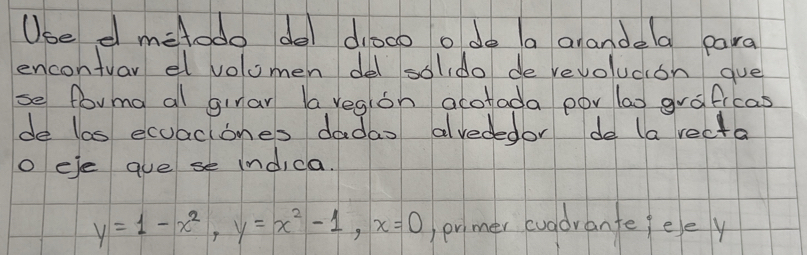 Use el método del disco o de la arandela para
encontrar el volúmen del sólido de revolución que
se forma al girar la región acotada por las gráficas
de las ecuaciónes dadas alrededor de la recta
o eje que se indica.
y = 1 - x², y = x² - 1, x = 0, primer cuadrante; eje y